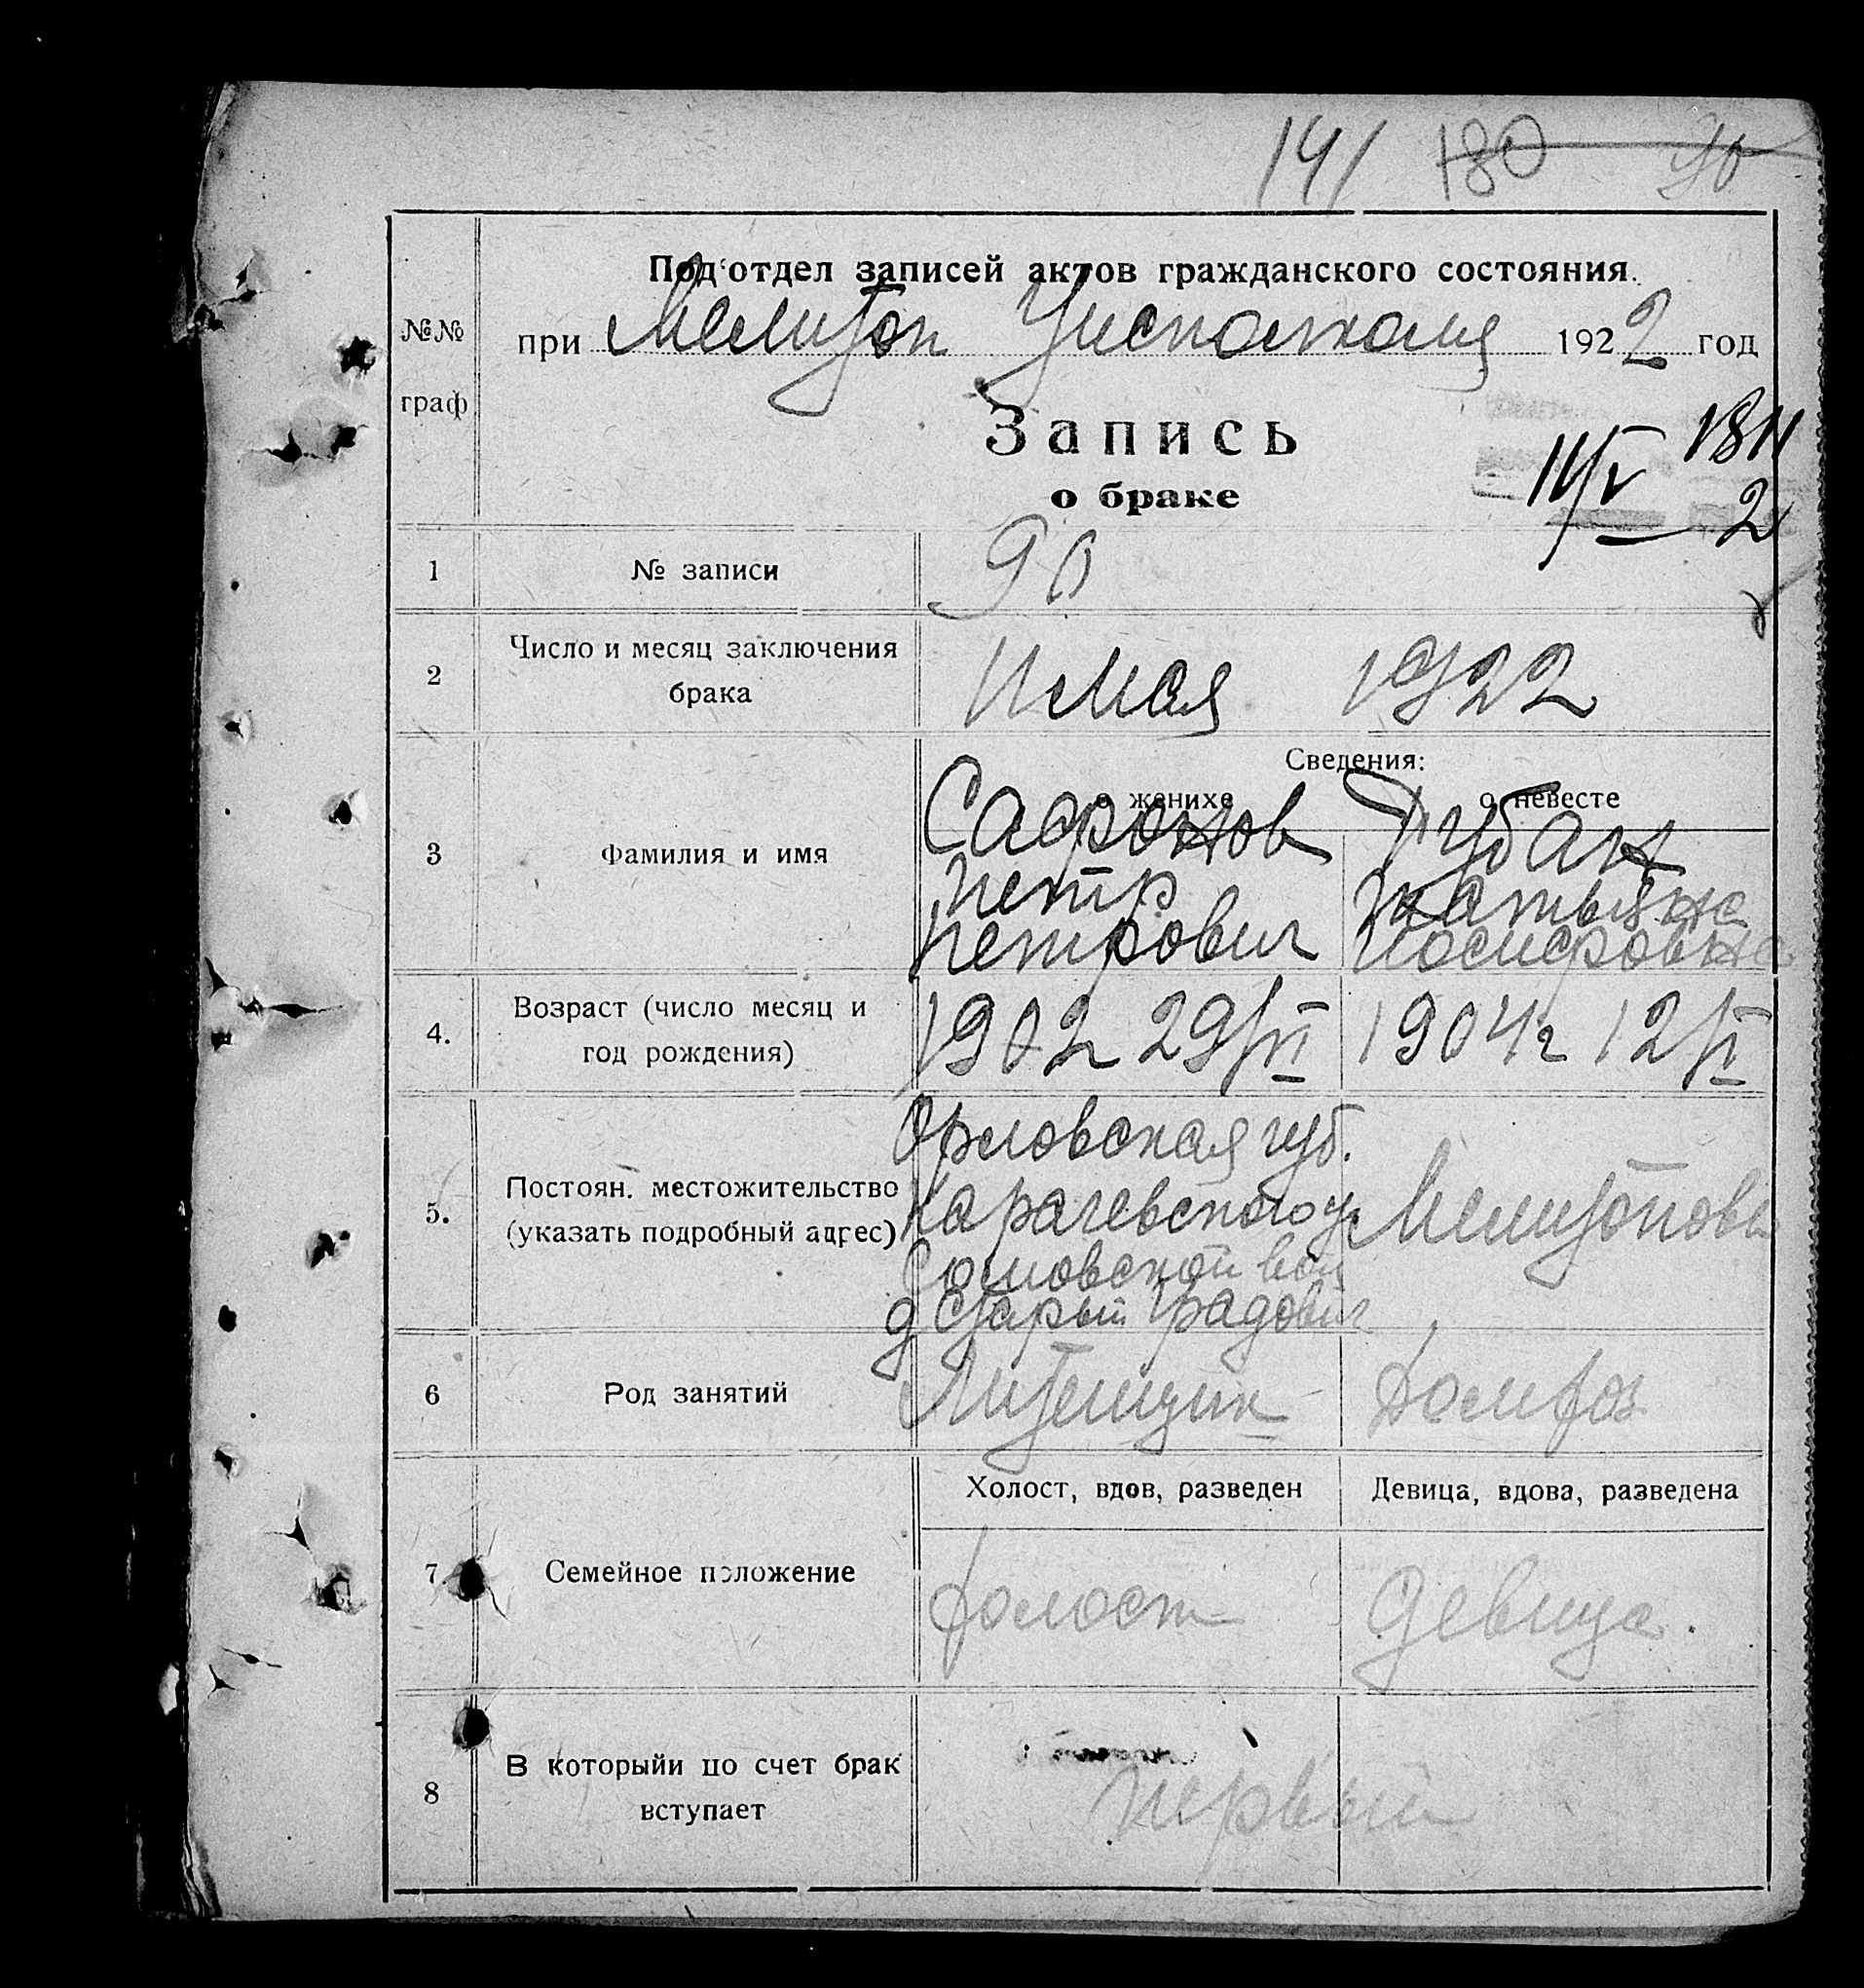 141 180 90
Под‘отдел записей актов гражданского состояния.
№№
граф.
при Мелитоп Уисполкома 1922 год
Запись
о браке
11/V
1 № записи 90
2 Число и месяц заключения
брака
11 мая 1922
Сведения:
о женихе о невесте
3 Фамилия и имя
Сафронов
Петр
Петрович
Губан
Татьяна
Иосифовна
4. Возраст (число месяц и
год рождения)
1902 29/VI 1904 г 12/I
5. Постоян. местожительство
(указать подробный адрес)
Орловская губ.
Карачевского у
Сомовской вол
д Старый
Мелитополь
6 Род занятий
Литейщик Домхоз
Холост, вдов, разведен Девица, вдова, разведена
7 Семейное положение
Холост Девица.
8 В которыйи по счет брак
вступает
первый